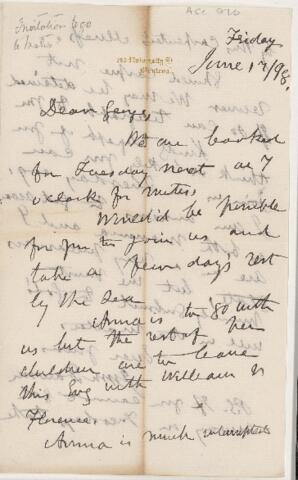 Invitation to go
to Metis
ACC 070
Friday
June 17/98.
Dear George
We are booked
for Tuesday next at 7
o'clock for Metis,
Would it be possible
for you to join us and
take a few days rest
by the sea
Anna is to go with
us but the rest of her
children are to leave
this Evg with William &
Florence
Anna is much